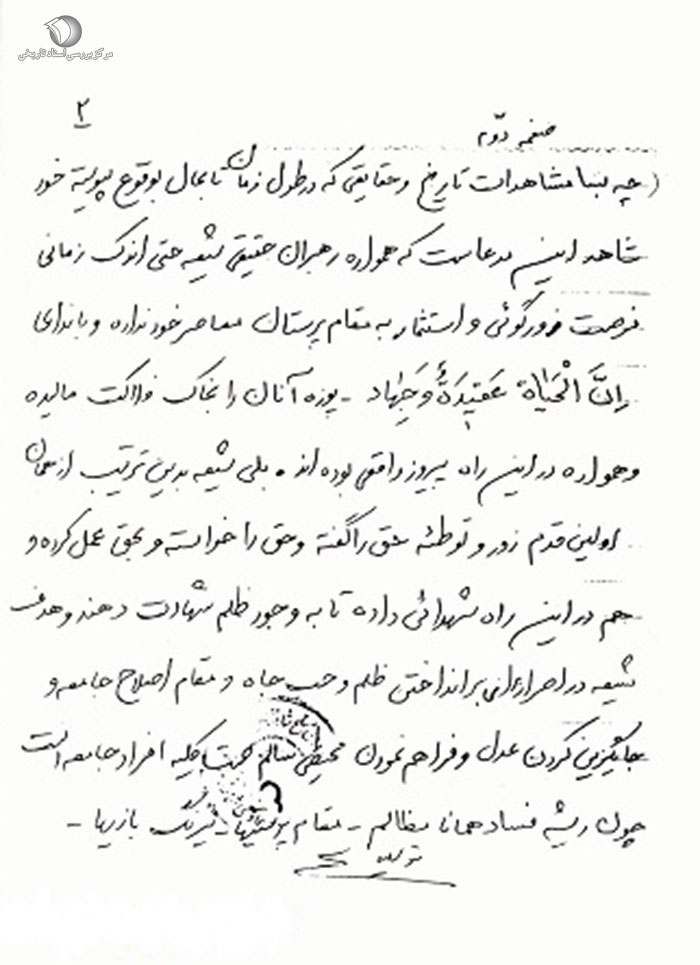 مرکز بررسی اسناد تاریخی
۲
صفحه دوّم
(چه بسا مشاهدات تاریخ و حقایقی که در طول زمان تا بحال بوقوع پیوسته خود
شاهد این مدعاست که همواره رهبران حقیقی شیعه حتی اندک زمانی
فرصت زورگوئی و استثمار به مقام پرستان معاصر خود نداده و با ندای
اِنَّ الْحَیاةَ عَقیدَةٌ وَ جِهاد - پوزه آنان را بخاک فلاکت مالیده
و همواره در این راه پیروز واقعی بوده اند . بلی شیعه بدین ترتیب از همان
اولین قدم زور و توطئه حق را گفته و حق را خواسته و بحق عمل کرده و
هم در این راه شهدائی داده تا به وجود ظلم شهادت دهند و هدف
شیعه در احرار برانداختن ظلم و حب جاه و مقام اصلاح جامعه و
جایگزین کردن عدل و فراهم نمودن محیطی سالم جهت کلیه افراد جامعه است
چون ریشه فساد همانا مظالم - مقام پرستیها - نیرنگ بازیها -